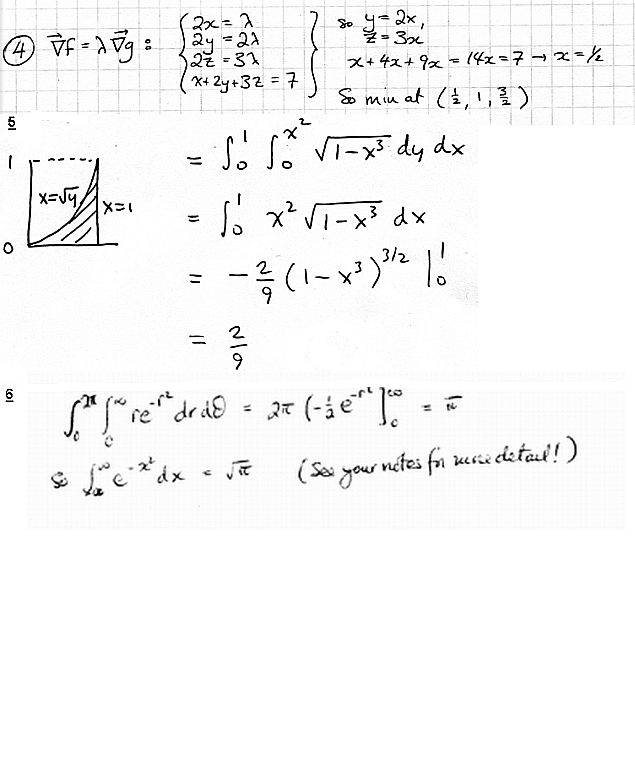 ④ ∇⃗f = λ∇⃗g : { 2x = λ
2y = 2λ
2z = 3λ
x + 2y + 3z = 7 }
so y = 2x,
z = 3x
x + 4x + 9x = 14x = 7 → x = ½
So min at (½, 1, 3/2)
5
1
x=√y
x=1
0
= ∫₀¹ ∫₀^{x²} √(1-x³) dy dx
= ∫₀¹ x² √(1-x³) dx
= -2/9 (1-x³)^{3/2} |₀¹
= 2/9
6
∫₀^{2π} ∫₀^∞ re^{-r²} dr dθ = 2π (-½ e^{-r²}]₀^∞ = π
So ∫_{-∞}^∞ e^{-x²} dx = √π (See your notes for more detail!)